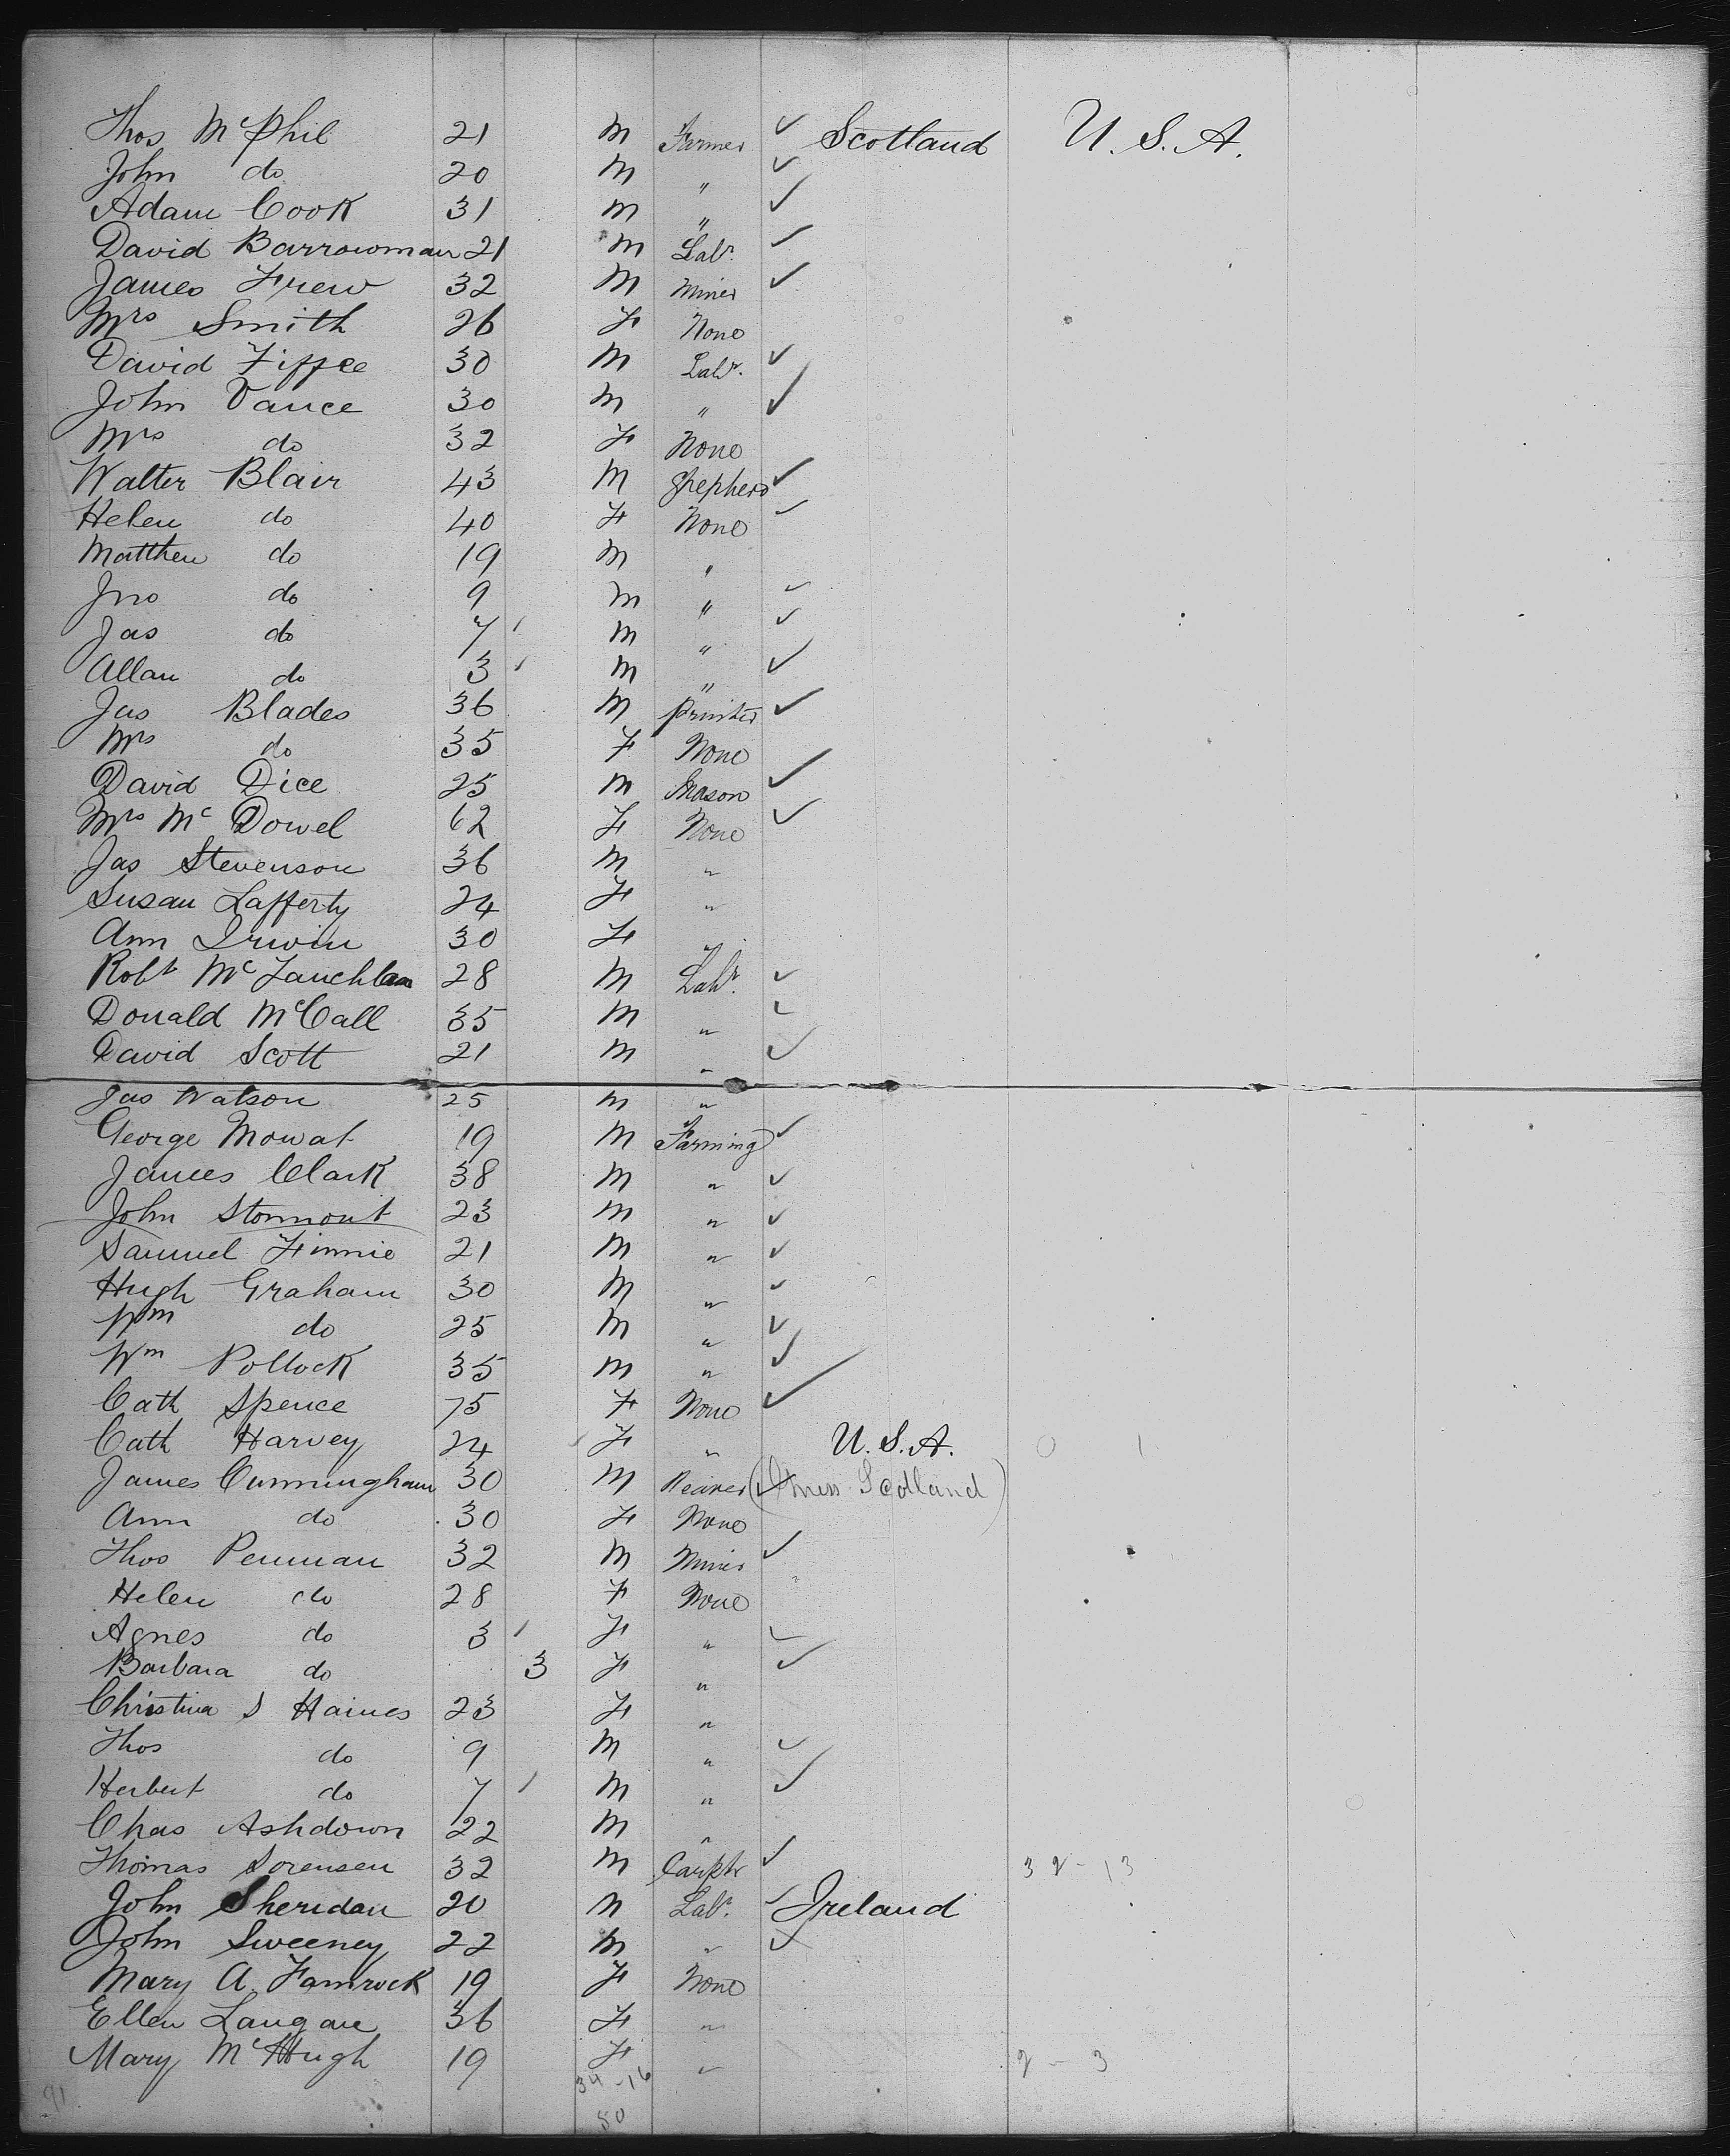 Thos McPhil 21 M Farmer ✓ Scotland U.S.A.
John do 20 M " ✓
Adam Cook 31 M " ✓
David Barrowman 21 M Labr. ✓
James Frew 32 M Miner ✓
Mrs Smith 26 F None
David Fiffee 30 M Labr. ✓
John Vance 30 M " ✓
Mrs do 32 F None
Walter Blair 43 M Shepherd ✓
Helen do 40 F None ✓
Matthew do 19 M "
Jno do 9 M " ✓
Jas do 7 M " ✓
Allan do 3 M " ✓
Jas Blades 36 M Printer ✓
Mrs do 35 F None
David Dice 25 M Mason ✓
Mrs McDowel 62 F None ✓
Jas Stevenson 36 M "
Susan Lafferty 24 F "
Ann Irwin 30 F "
Robt McLauchlan 28 M Labr. ✓
Donald McCall 35 M " ✓
David Scott 21 M " ✓
Jas Watson 25 M "
George Mowat 19 M Farming ✓
James Clark 38 M " ✓
John Stormont 23 M " ✓
Samuel Finnie 21 M " ✓
Hugh Graham 30 M " ✓
Wm do 25 M " ✓
Wm Pollock 35 M " ✓
Cath Spence 75 F None ✓
Cath Harvey 24 F " U.S.A.
James Cunningham 30 M Scotland)
Ann do 30 F None
Thos Penman 32 M Miner ✓
Helen do 28 F None
Agnes do 3 F " ✓
Barbara do 3 F " ✓
Christina S Haines 23 F "
Thos do 9 M " ✓
Herbert do 7 M " ✓
Chas Ashdown 22 M "
Thomas Sorensen 32 M Carptr ✓ 32-13
John Sheridan 20 M Labr. ✓ Ireland
John Sweeney 22 M " ✓
Mary A. Famrock 19 F None
Ellen Langan 36 F "
Mary McHugh 19 F " 2-3
34-16
50
91